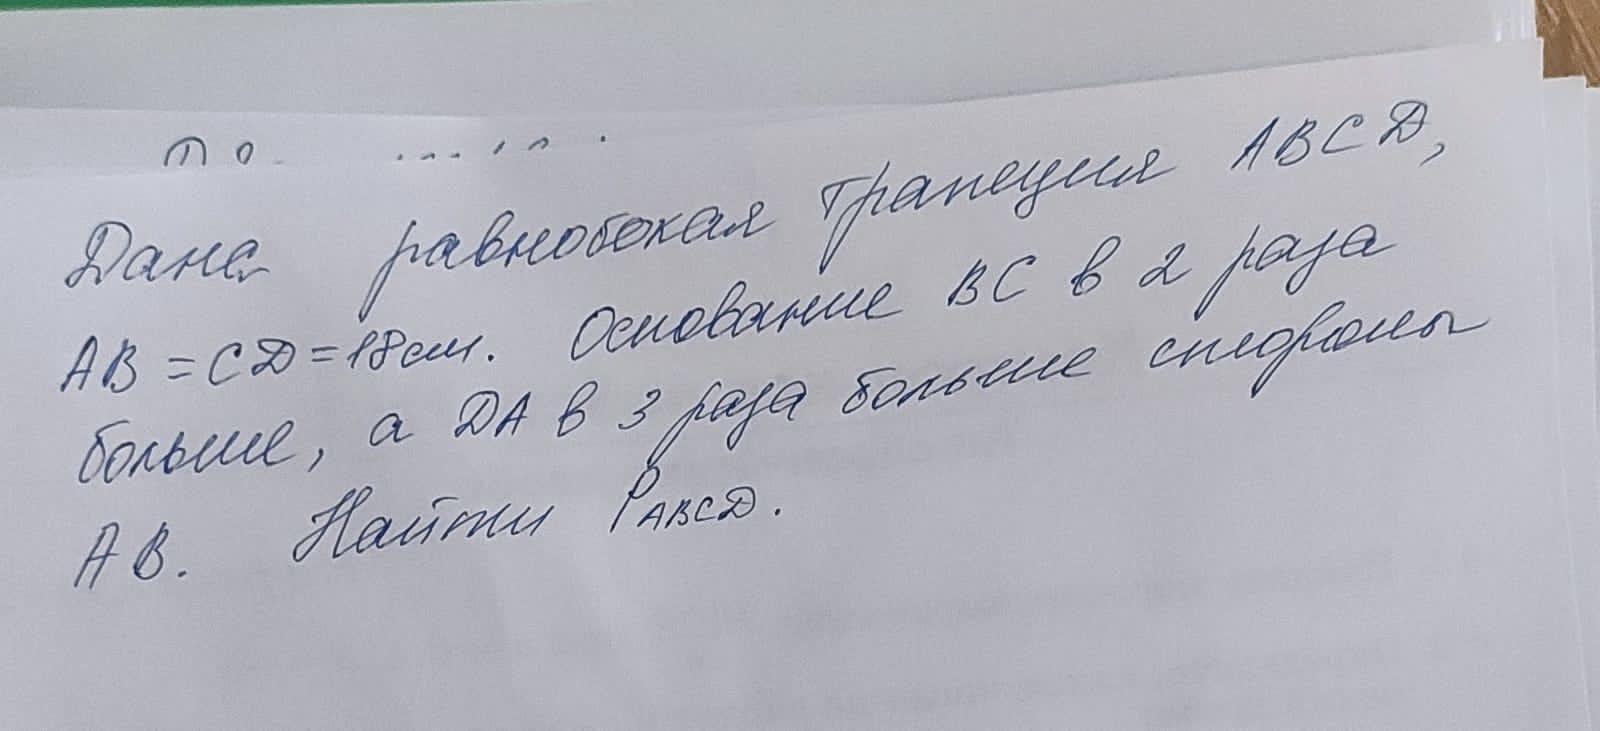 Дана равнобокая трапеция ABCD,
AB = CD = 18 см. Основание BC в 2 раза
больше, а DA в 3 раза больше стороны
AB. Найти PABCD.